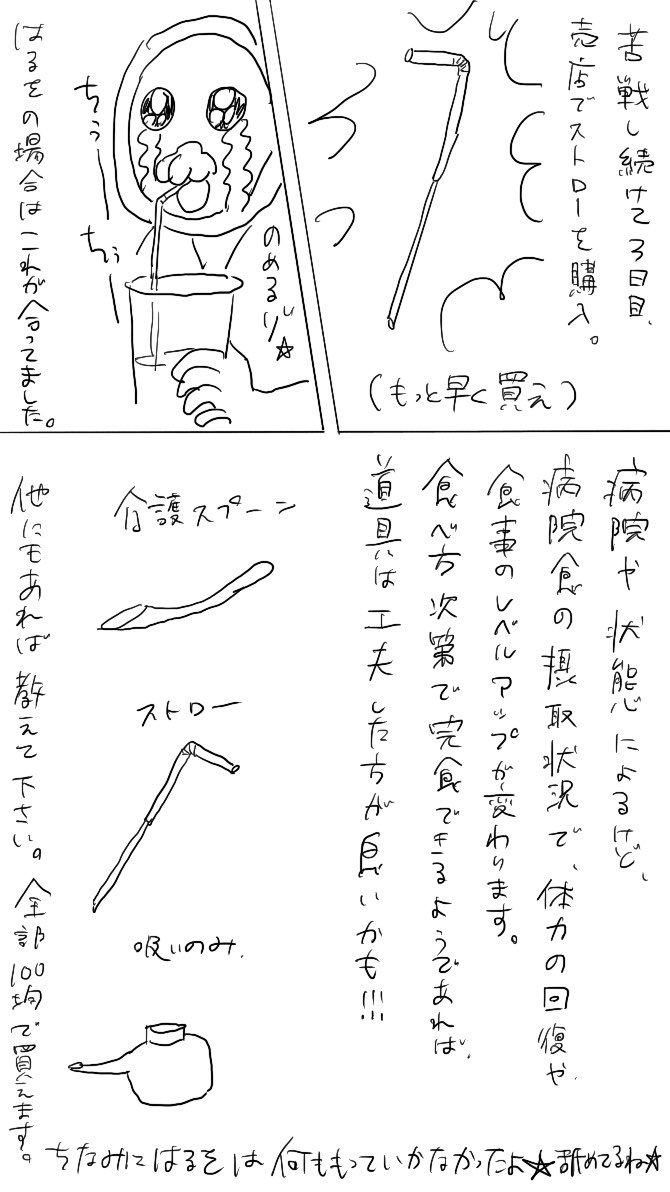 苦戦し続けて3日目、
売店でストローを購入。
(もっと早く買え)
のめるゾ☆
ちぅー
ちぅー
はるをの場合はこれが合ってました。
病院や状態によるけど、
病院食の摂取状況で、体力の回復や
食事のレベルアップが変わります。
食べ方次第で完食できるようであれば、
道具は工夫した方が良いかも!!!
介護スプーン
ストロー
吸いのみ
他にもあれば教えて下さい。全部100均で買えます。
ちなみにはるをは何ももっていかなかったよ☆舐めてるね☆